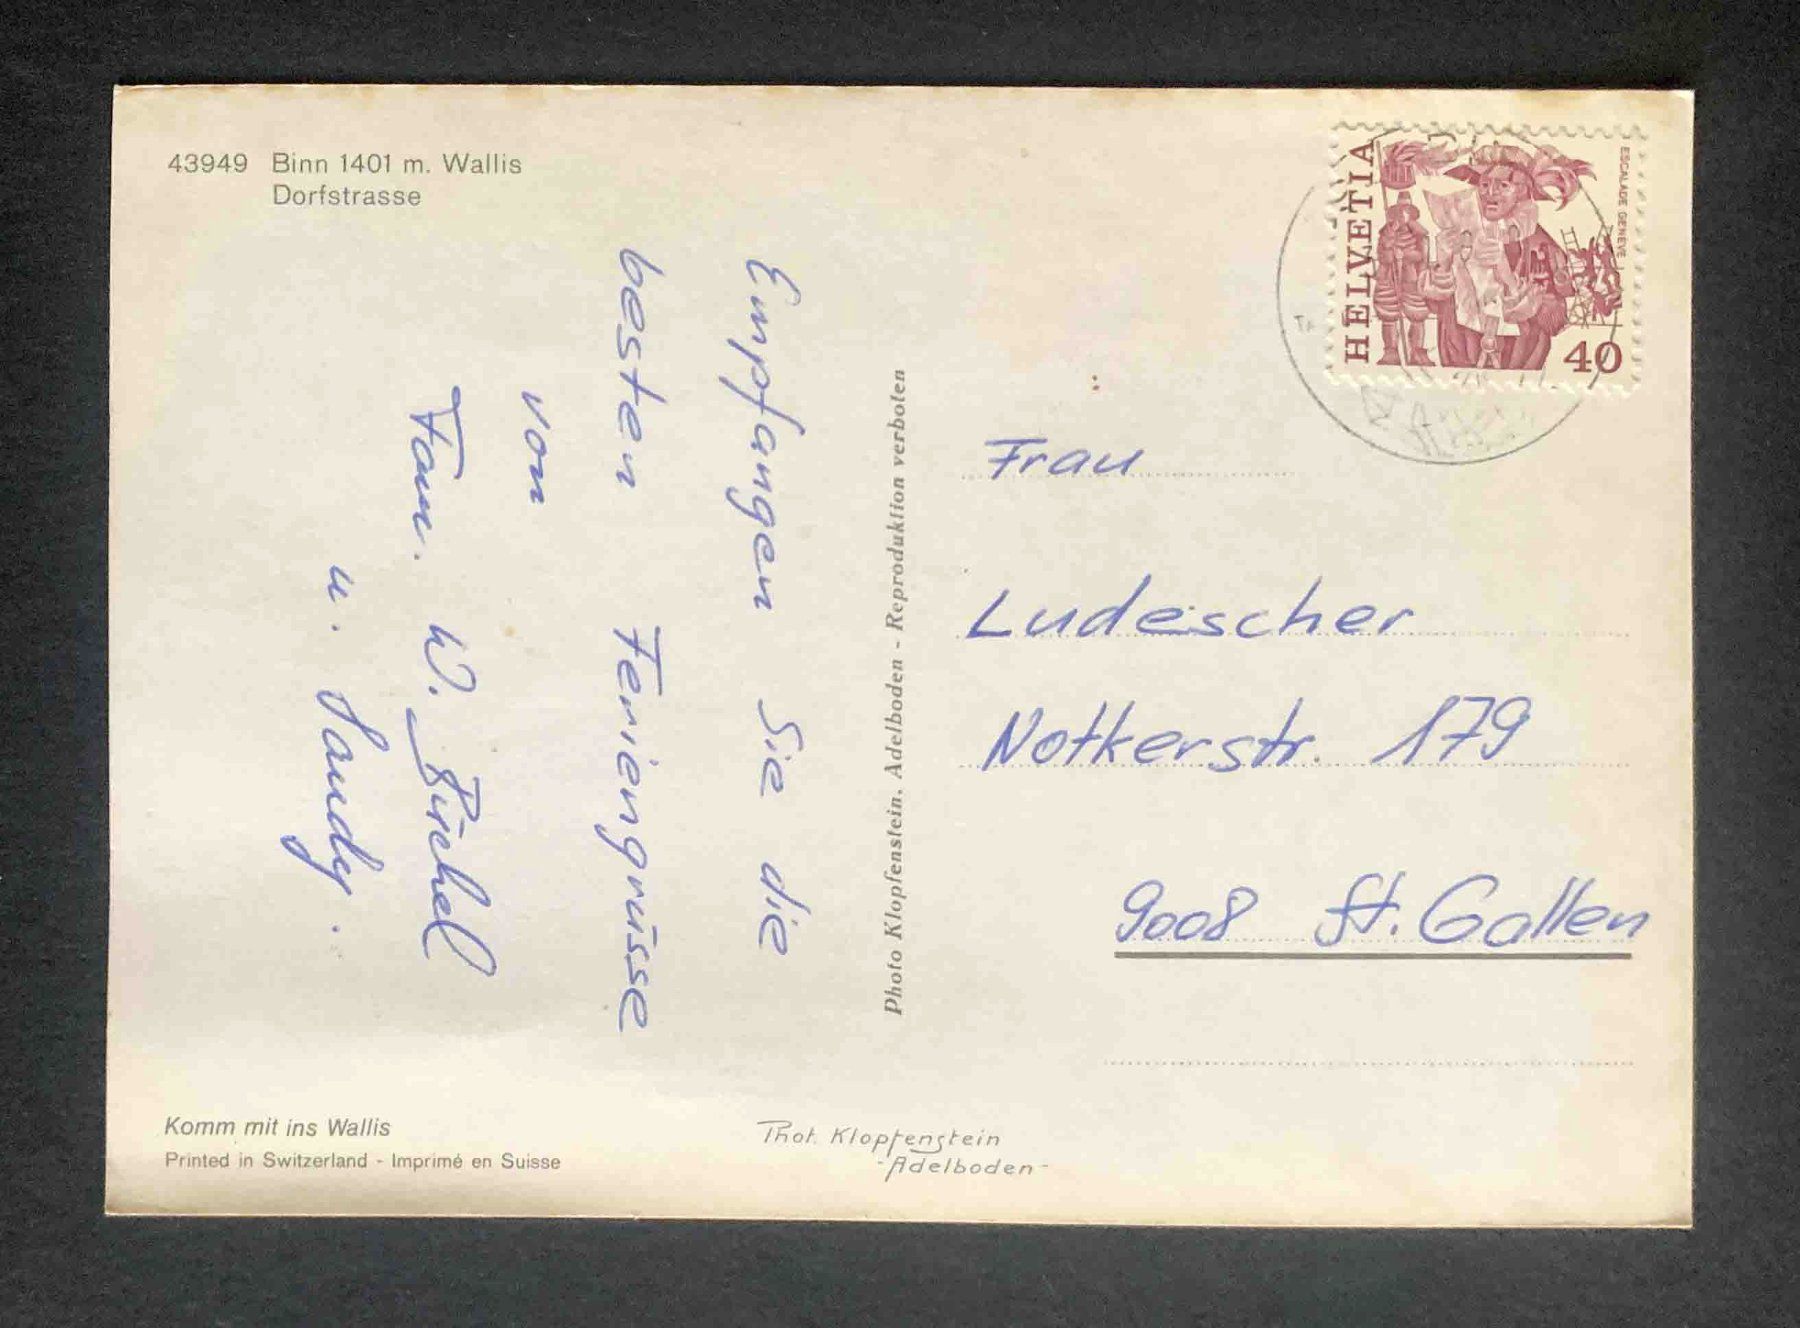 43949 Binn 1401 m. Wallis
Dorfstrasse
Empfangen Sie die
besten Feriengrüsse
von
Fam. W. Büchel
u. Sandy.
Photo Klopfenstein, Adelboden - Reproduktion verboten
HELVETIA
ESCALADE GENEVE
40
Frau
Ludescher
Notkerstr. 179
9008 St. Gallen
Komm mit ins Wallis
Printed in Switzerland - Imprimé en Suisse
Phot. Klopfenstein
-Adelboden-